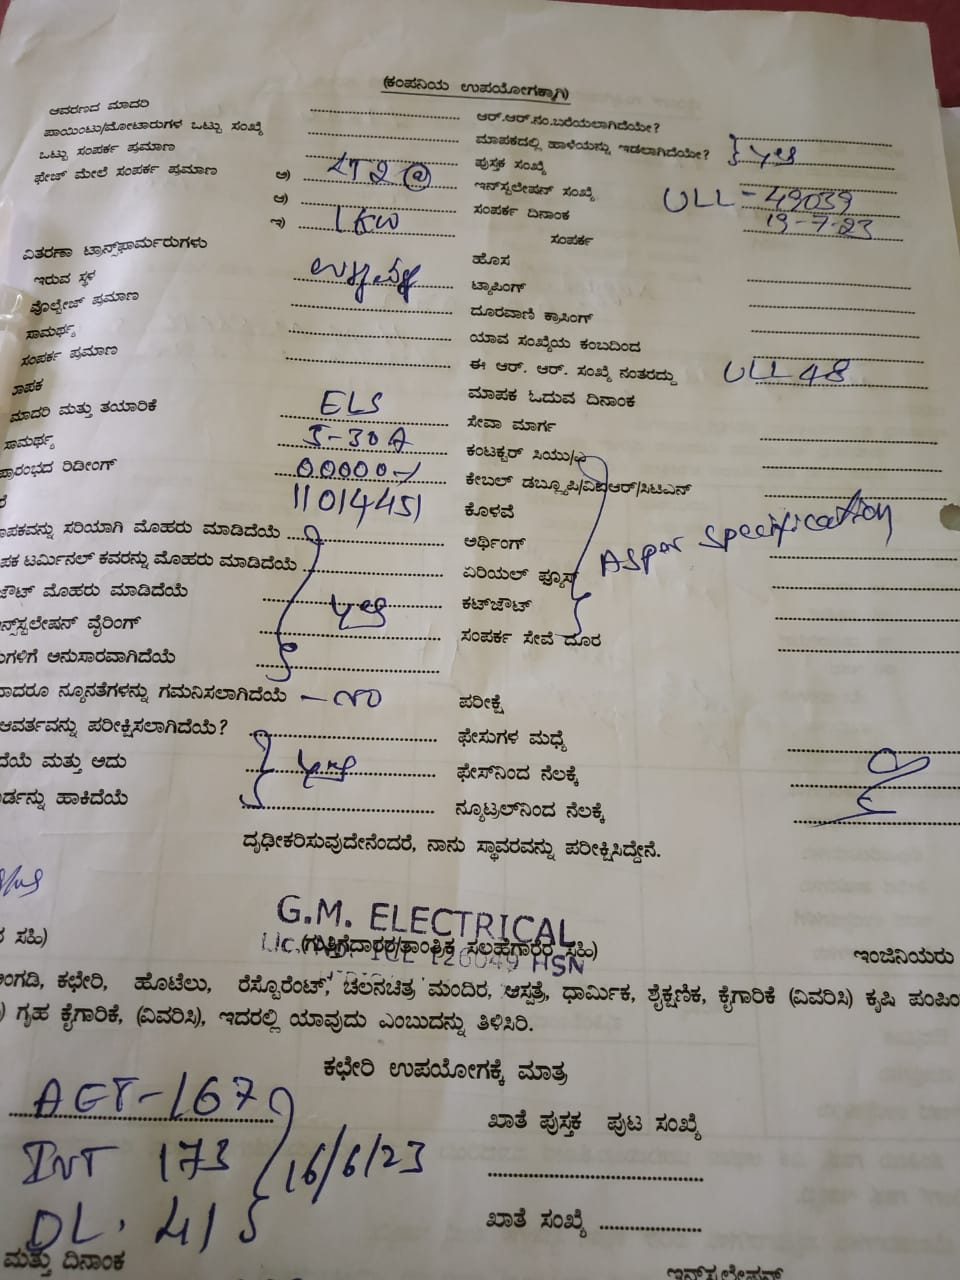 (ಕಂಪನಿಯ ಉಪಯೋಗಕ್ಕಾಗಿ)
ಆವರಣದ ಮಾದರಿ
ಪಾಯಿಂಟು/ಮೋಟಾರುಗಳ ಒಟ್ಟು ಸಂಖ್ಯೆ
ಒಟ್ಟು ಸಂಪರ್ಕ ಪ್ರಮಾಣ
ಫೇಜ್ ಮೇಲೆ ಸಂಪರ್ಕ ಪ್ರಮಾಣ ಅ) LT2 @
ಆ)
ಇ) 1KW
ವಿತರಣಾ ಟ್ರಾನ್ಸ್‌ಫಾರ್ಮರುಗಳು
ಇರುವ ಸ್ಥಳ
ವೋಲ್ಟೇಜ್ ಪ್ರಮಾಣ
ಸಾಮರ್ಥ್ಯ
ಸಂಪರ್ಕ ಪ್ರಮಾಣ
ಮಾದರಿ ಮತ್ತು ತಯಾರಿಕೆ ELS
ಸಾಮರ್ಥ್ಯ 5-30A
ಪ್ರಾರಂಭದ ರಿಡೀಂಗ್ 00000-/
11014451
ಸರಿಯಾಗಿ ಮೊಹರು ಮಾಡಿದೆಯೆ
ಟರ್ಮಿನಲ್ ಕವರನ್ನು ಮೊಹರು ಮಾಡಿದೆಯೆ
ಮೊಹರು ಮಾಡಿದೆಯೆ yes
ವೈರಿಂಗ್
ಅನುಸಾರವಾಗಿದೆಯೆ
ನ್ಯೂನತೆಗಳನ್ನು ಗಮನಿಸಲಾಗಿದೆಯೆ - NO
ಆವರ್ತವನ್ನು ಪರೀಕ್ಷಿಸಲಾಗಿದೆಯೆ?
ಮತ್ತು ಅದು yes
ಹಾಕಿದೆಯೆ
ಆರ್.ಆರ್.ನಂ.ಬರೆಯಲಾಗಿದೆಯೇ?
ಮಾಪಕದಲ್ಲಿ ಹಾಳೆಯನ್ನು ಇಡಲಾಗಿದೆಯೇ? yes
ಪುಸ್ತಕ ಸಂಖ್ಯೆ
ಇನ್‌ಸ್ಟಲೇಷನ್ ಸಂಖ್ಯೆ ULL-49039
ಸಂಪರ್ಕ ದಿನಾಂಕ 19-7-23
ಸಂಪರ್ಕ
ಹೊಸ
ಟ್ಯಾಪಿಂಗ್
ದೂರವಾಣಿ ಕ್ರಾಸಿಂಗ್
ಯಾವ ಸಂಖ್ಯೆಯ ಕಂಬದಿಂದ
ಈ ಆರ್. ಆರ್. ಸಂಖ್ಯೆ ನಂತರದ್ದು ULL 48
ಮಾಪಕ ಓದುವ ದಿನಾಂಕ
ಸೇವಾ ಮಾರ್ಗ
ಕಂಟಕ್ಟರ್ ಸಿಯು/ಎ
ಕೇಬಲ್ ಡಬ್ಲ್ಯೂಪಿ/ವಿಐಆರ್/ಸಿಟಿಎನ್
ಕೊಳವೆ
ಅರ್ಥಿಂಗ್ Asper specification
ಏರಿಯಲ್ ಫ್ಯೂಸ್
ಕಟ್‌ಔಟ್
ಸಂಪರ್ಕ ಸೇವೆ ದೂರ
ಪರೀಕ್ಷೆ
ಫೇಸುಗಳ ಮಧ್ಯೆ
ಫೇಸ್‌ನಿಂದ ನೆಲಕ್ಕೆ
ನ್ಯೂಟ್ರಲ್‌ನಿಂದ ನೆಲಕ್ಕೆ
ದೃಢೀಕರಿಸುವುದೇನೆಂದರೆ, ನಾನು ಸ್ಥಾವರವನ್ನು ಪರೀಕ್ಷಿಸಿದ್ದೇನೆ.
G.M. ELECTRICAL
ಸಹಿ) (ಗುತ್ತಿಗೆದಾರರ/ತಾಂತ್ರಿಕ ಸಲಹೆಗಾರರ ಸಹಿ) ಇಂಜಿನಿಯರು
126049 HSN
ಅಂಗಡಿ, ಕಛೇರಿ, ಹೊಟೆಲು, ರೆಸ್ಟೋರೆಂಟ್, ಚಲನಚಿತ್ರ ಮಂದಿರ, ಆಸ್ಪತ್ರೆ, ಧಾರ್ಮಿಕ, ಶೈಕ್ಷಣಿಕ, ಕೈಗಾರಿಕೆ (ವಿವರಿಸಿ) ಕೃಷಿ
) ಗೃಹ ಕೈಗಾರಿಕೆ, (ವಿವರಿಸಿ), ಇದರಲ್ಲಿ ಯಾವುದು ಎಂಬುದನ್ನು ತಿಳಿಸಿರಿ.
ಕಛೇರಿ ಉಪಯೋಗಕ್ಕೆ ಮಾತ್ರ
AGT-167
INT 173 16/6/23
DL. 41
ಮತ್ತು ದಿನಾಂಕ
ಖಾತೆ ಪುಸ್ತಕ ಪುಟ ಸಂಖ್ಯೆ
ಖಾತೆ ಸಂಖ್ಯೆ
ಇನ್‌ಸ್ಟಲೇಷನ್